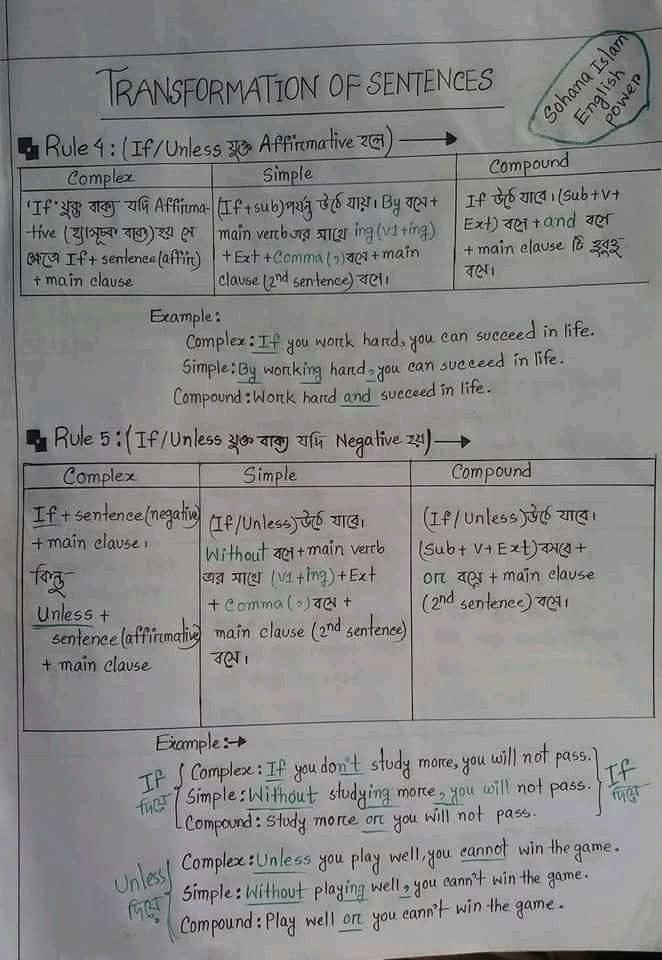 TRANSFORMATION OF SENTENCES
Sohana Islam
English
power
Rule 4: (If/Unless যুক্ত Affirmative হলে)
Complex
'If' যুক্ত বাক্য যদি Affirma-
tive (হ্যাঁসূচক বাক্য) হয় সে
ক্ষেত্রে If + sentence (affir)
+ main clause
Simple
(If + sub) পর্যন্ত উঠে যায়। By বসে +
main verb এর সাথে ing (v1+ing)
+ Ext + Comma (,) বসে + main
clause (2nd sentence) বসে।
Compound
If উঠে যাবে। (Sub + V +
Ext) বসে + and বসে
+ main clause টি হুবহু
বসে।
Example:
Complex: If you work hard, you can succeed in life.
Simple: By working hard, you can succeed in life.
Compound: Work hard and succeed in life.
Rule 5: (If/Unless যুক্ত বাক্য যদি Negative হয়)
Complex
If + sentence (negative)
+ main clause।
কিন্তু
Unless +
sentence (affirmative)
+ main clause
Simple
(If/Unless) উঠে যাবে।
Without বসে + main verb
এর সাথে (v1 + ing) + Ext
+ Comma (,) বসে +
main clause (2nd sentence)
বসে।
Compound
(If/Unless) উঠে যাবে।
(Sub + V + Ext) বসবে +
or বসে + main clause
(2nd sentence) বসে।
Example:→
If দিয়ে
Complex: If you don't study more, you will not pass.
Simple: Without studying more, you will not pass.
Compound: Study more or you will not pass.
If দিয়ে
Unless দিয়ে
Complex: Unless you play well, you cannot win the game.
Simple: Without playing well, you cann't win the game.
Compound: Play well or you cann't win the game.